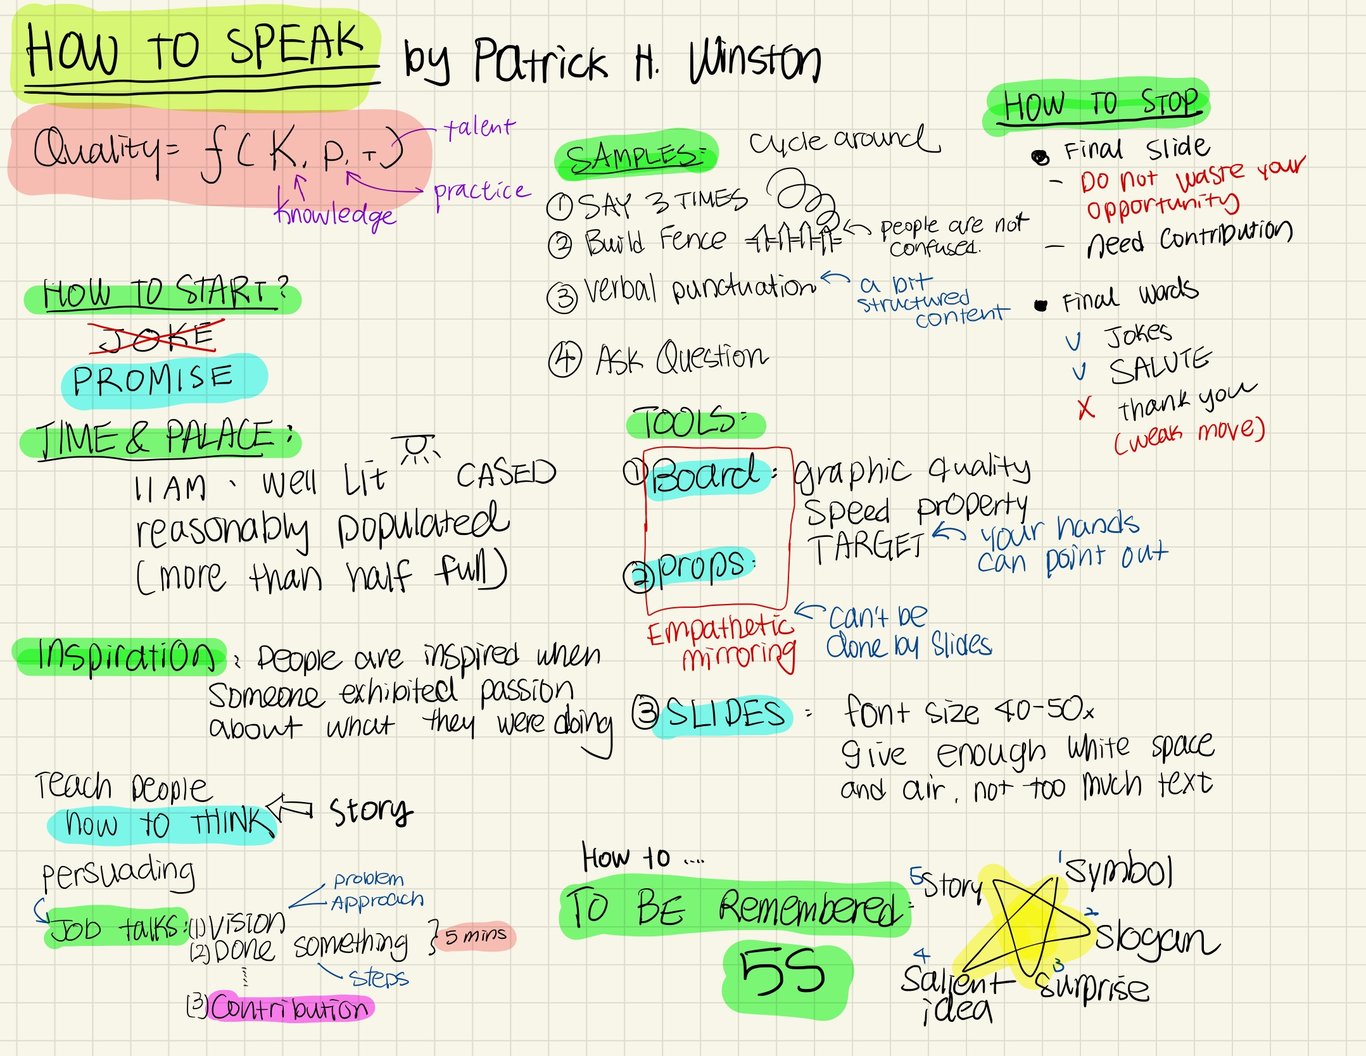 HOW TO SPEAK by Patrick H. Winston
Quality = f ( K, P, T )
talent
practice
knowledge
HOW TO START?
JOKE
PROMISE
TIME & PALACE:
11 AM . well Lit CASED
reasonably populated
(more than half full)
Inspiration : People are inspired when
Someone exhibited passion
about what they were doing
Teach people
how to THINK
Story
persuading
Job talks: (1) Vision
problem
Approach
(2) Done something
5 mins
steps
(3) Contribution
SAMPLES: Cycle around
① SAY 3 TIMES
② Build Fence
people are not
confused.
③ verbal punctuation
a bit
structured
content
④ Ask Question
TOOLS:
① Board: graphic quality
speed property
TARGET
your hands
can point out
② props:
Empathetic
mirroring
can't be
done by slides
③ SLIDES : font size 40-50x
give enough white space
and air, not too much text
How to ....
TO BE Remembered:
5S
1 Symbol
2 Slogan
3 Surprise
4 Salient
idea
5 Story
HOW TO STOP
• Final Slide
- Do not waste your
opportunity
- need contribution
• Final words
v Jokes
v SALUTE
x thank you
(weak move)